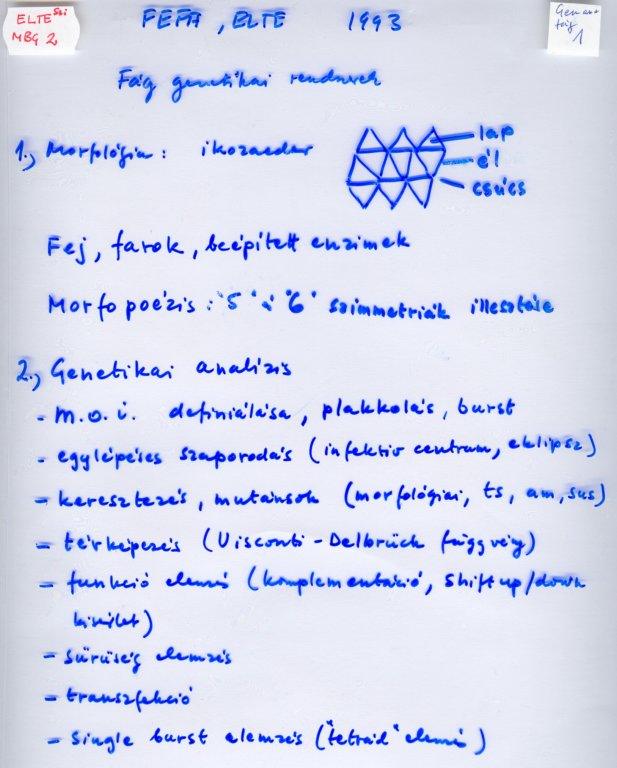 ELTE Szi
MBG 2,
FEFA, ELTE 1993
1
Fág genetikai rendszerek
1., Morfológia: ikozaeder
lap
él
csúcs
Fej, farok, beépített enzimek
Morfopoézis: "5" "6" szimmetriák illesztése
2., Genetikai analízis
- m.o.i. definiálása, plakkolás, burst
- egylépéses szaporodás (infektiv centrum, eklipsz)
- keresztezés, mutánsok (morfológiai, ts, am, sus)
- térképezés (Visconti-Delbrück függvény)
- funkció elemzés (komplementáció, shift up/down
kisérlet)
- sűrűség elemzés
- transzfekció
- single burst elemzés ("tetrád" elemzés)